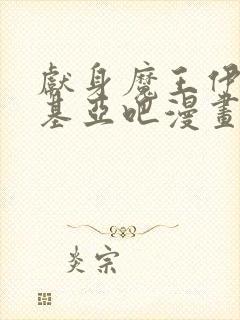 獻身魔王伊
基亞吧漫畫
炎宗